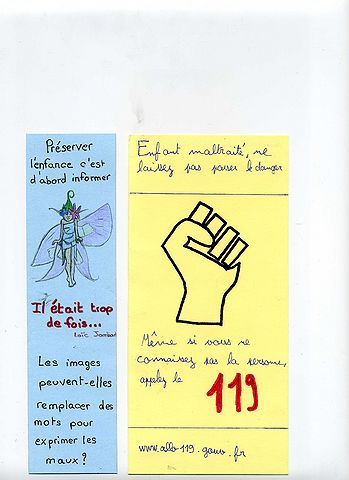 Préserver
l'enfance c'est
d'abord informer
Il était trop
de fois...
Loïc Jambon
Les images
peuvent-elles
remplacer des
mots pour
exprimer les
maux?
Enfant maltraité, ne
laissez pas passer le danger
Même si vous ne
connaissez pas la personne,
appelez le
119
www.allo119.gouv.fr